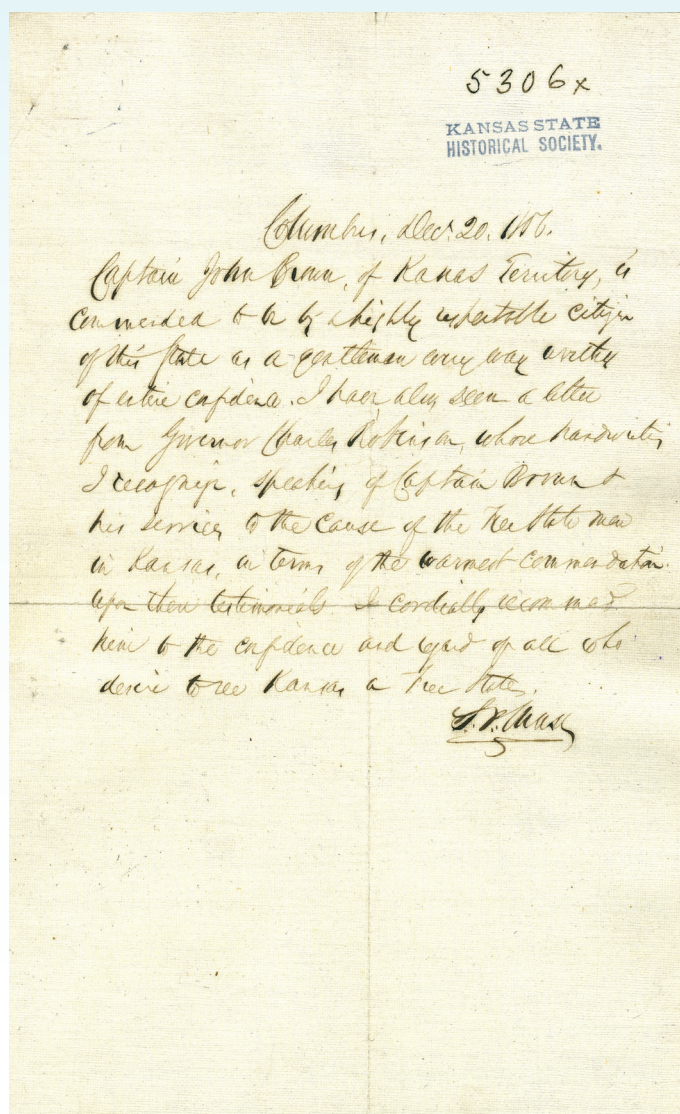 5306x
KANSAS STATE
HISTORICAL SOCIETY.
Columbus, Dec. 20, 1856.
Captain John Brown, of Kansas Territory, is
commended to me by a highly respectable citizen
of this State as a gentleman every way worthy
of entire confidence. I have also seen a letter
from Governor Charles Robinson, whose handwriting
I recognize, speaking of Captain Brown &
his services to the cause of the Free State men
in Kansas, in terms of the warmest commendation.
Upon these testimonials I cordially recommend
him to the confidence and regard of all who
desire to see Kansas a Free State.
S. P. Chase